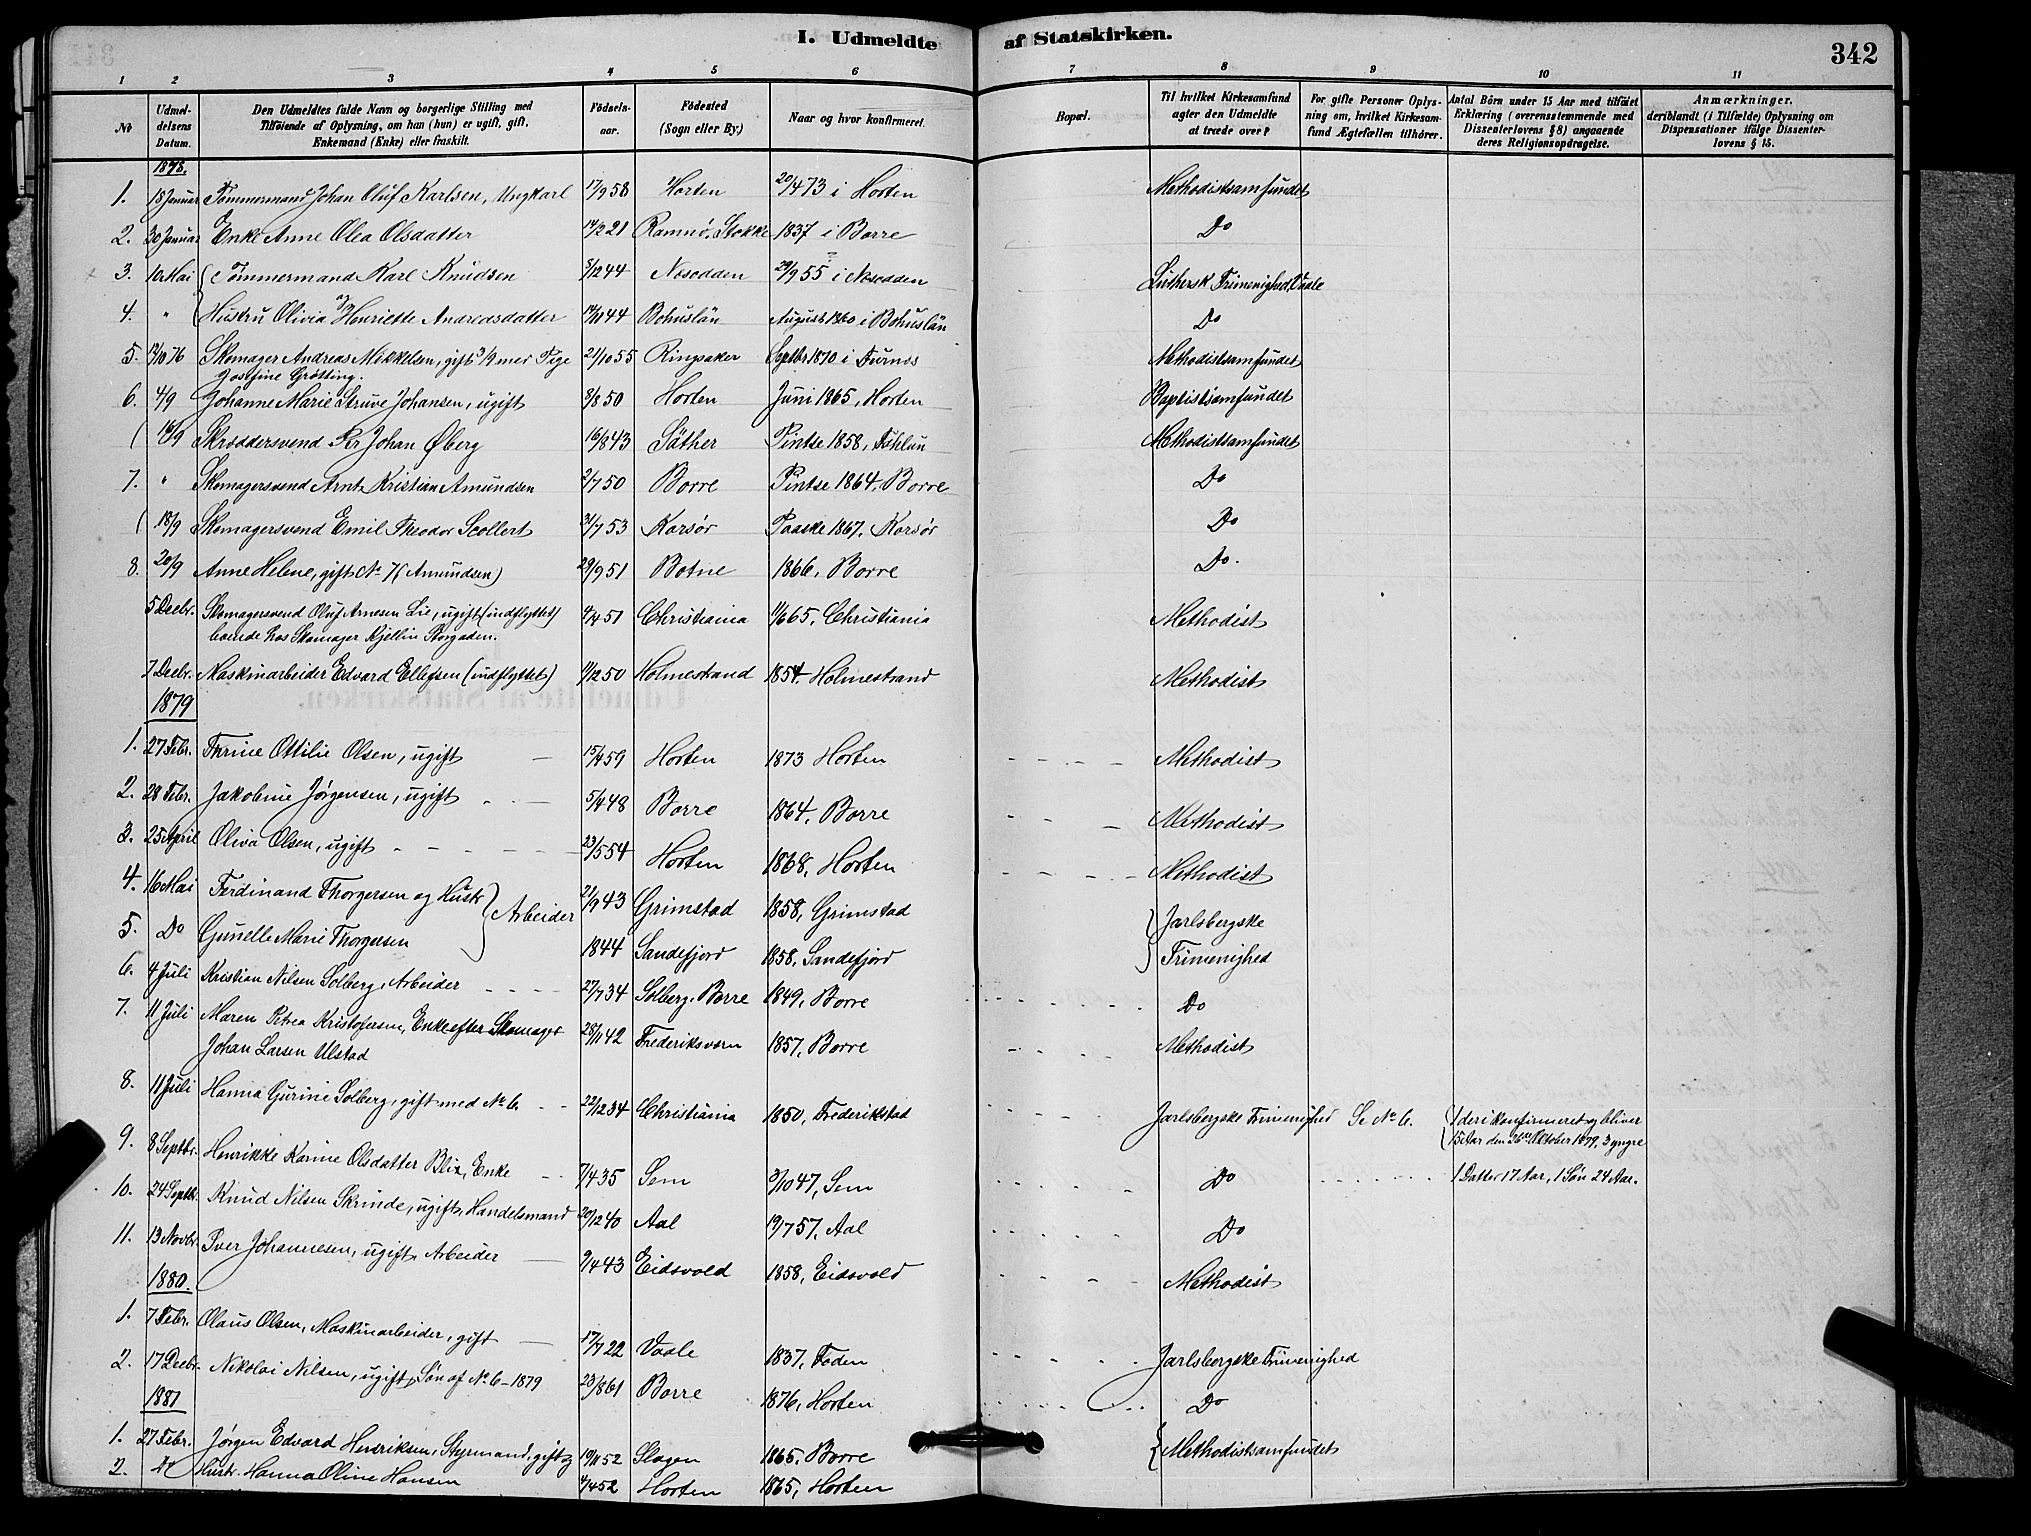 I. Udmeldte af Statskirken.
342
1 2 3 4 5 6 7 8 9 10 11
No
Udmel-
delsens
Datum.
Den Udmeldtes fulde Navn og borgerlige Stilling med
Tilføiende af Oplysning, om han (hun) er ugift, gift,
Enkemand (Enke) eller fraskilt.
Fødsels-
aar.
Fødested
(Sogn eller By.)
Naar og hvor konfirmeret.
Bopæl.
Til hvilket Kirkesamfund
agter den Udmeldte
at træde over?
For gifte Personer Oplys-
ning om, hvilket Kirkesam-
fund Ægtefællen tilhører.
Antal Børn under 15 Aar med tilføiet
Erklæring (overensstemmende med
Dissenterlovens § 8) angaaende
deres Religionsopdragelse.
Anmærkninger,
deriblandt (i Tilfælde) Oplysning om
Dispensationer ifølge Dissenter-
lovens § 15.
1878.
1. 18 Januar Tømmermand Johan Oluf Karlsen, Ungkarl 17/9 58 Horten 20/4 73 i Horten Methodistsamfundet
2. 30 Januar Enke Anne Olea Olsdatter 14/2 21 Ramnø, Stokke 1837 i Borre Do
3. 10 Mai Tømmermand Karl Knudsen 5/12 44 Nesodden 29/9 55 i Nesodden Luthersk Frimenighed, Vaale
4. " og Hustru Olivia Henriette Andreasdatter 14/11 44 Bohuslän August 1860 i Bohuslän Do
5. 12/10 76 Skomager Andreas Mikkelsen, gift 3/9 med Pige 21/10 55 Ringsaker Septbr 1870 i Furnes Methodistsamfundet
Josefine Grötting.
6. 4/9 Johanne Marie Struve Johansen, ugift 8/8 50 Horten Juni 1865, Horten Baptistsamfundet
( 16/9 Skræddersvend Per Johan Øberg 16/8 43 Säther Pintse 1858, Fahlun Methodistsamfundet
7. " Skomagersvend Arnt Kristian Amundsen 2/7 50 Borre Pintse 1864, Borre Do
( 18/9 Skomagersvend Emil Theodor Scollert 31/7 53 Korsør Paaske 1867, Korsør Do
8. 20/9 Anne Helene, gift No 7 (Amundsen) 29/9 51 Botne 1866, Borre Do.
5 Decbr. Skomagersvend Oluf Arnesen Lie, ugift (indflyttet) 4/4 51 Christiania 11/6 65, Christiania Methodist
boende hos Skomager Kjellin Storgaden.
7 Decbr. Maskinarbeider Edvard Ellefsen (indflyttet) 11/12 50 Holmestrand 1854, Holmestrand Methodist
1879
1. 27 Febr. Thrine Ottilie Olsen, ugift 15/4 59 Horten 1873 Horten Methodist
2. 28 Febr. Jakobine Jørgensen, ugift 5/4 48 Borre 1864, Borre Methodist
3. 25 April Oliva Olsen, ugift 23/5 54 Horten 1868, Horten Methodist
4. 16 Mai Ferdinand Thorgersen og Hustr Arbeider 21/9 43 Grimstad 1858, Grimstad Jarlsbergske
5. Do Gunelle Marie Thorgersen 1844 Sandefjord 1858, Sandefjord Frimenighed
6. 4 Juli Kristian Nilsen Solberg, Arbeider 27/7 34 Solberg, Borre 1849, Borre Do
7. 11 Juli Maren Petrea Kristofersen, Enke efter Skomager 28/11 42 Frederiksværn 1857, Borre Methodist
Johan Larsen Ulstad
8. 11 Juli Hanna Gurine Solberg, gift med No 6. 22/12 34 Christiania 1850, Frederikstad Jarlsbergske Frimenighed Se No 6. 1 der i konfirmeret og bliver
15 Aar den 26de Oktober 1879, 3 yngre
9. 8 Septbr. Henrikke Karine Olsdatter Blix, Enke 7/4 35 Sem 3/10 47, Sem Do 1 Datter 17 Aar, 1 Søn 24 Aar.
10. 24 Septbr. Knud Nilsen Skrinde, ugift, Handelsmand 20/12 40 Aal 19/7 57, Aal Do
11. 13 Novbr. Iver Johannesen, ugift, Arbeider 9/4 43 Eidsvold 1858, Eidsvold Methodist
1880.
1. 7 Febr. Olaus Olsen, Maskinarbeider, gift 17/7 22 Vaale 1837, Foden Jarlsbergske Frimenighed
2. 17 Decbr. Nikolai Nilsen, ugift, Søn af No 6 - 1879 23/8 61 Borre 1876, Horten Do
1881
1. 27 Febr. Jørgen Edvard Henriksen, Styrmand, gift og 19/11 52 Slagen 1865, Borre Methodistsamfundet
2. Do Hustr. Hanna Oline Hansen 4/4 52 Horten 1865, Horten